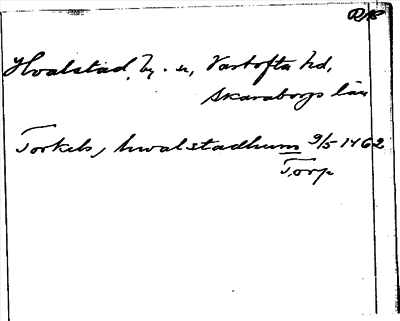 RAP
Hvalstad, by. sn, Vartofta hd,
Skaraborgs län
Torkels, hwalstadhum 9/5 1462
Torp